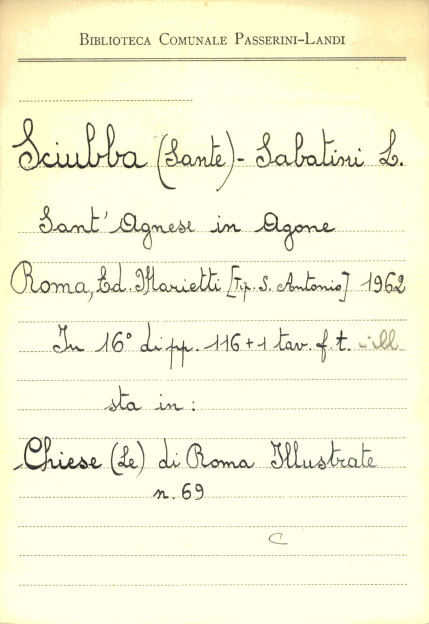 BIBLIOTECA COMUNALE PASSERINI-LANDI
Sciubba (Sante) - Sabatini L.
Sant'Agnese in Agone
Roma, Ed. Marietti [Tip. S. Antonio] 1962
In 16° di pp. 116+1 tav. f. t. - ill
sta in:
Chiese (Le) di Roma Illustrate
n. 69
C